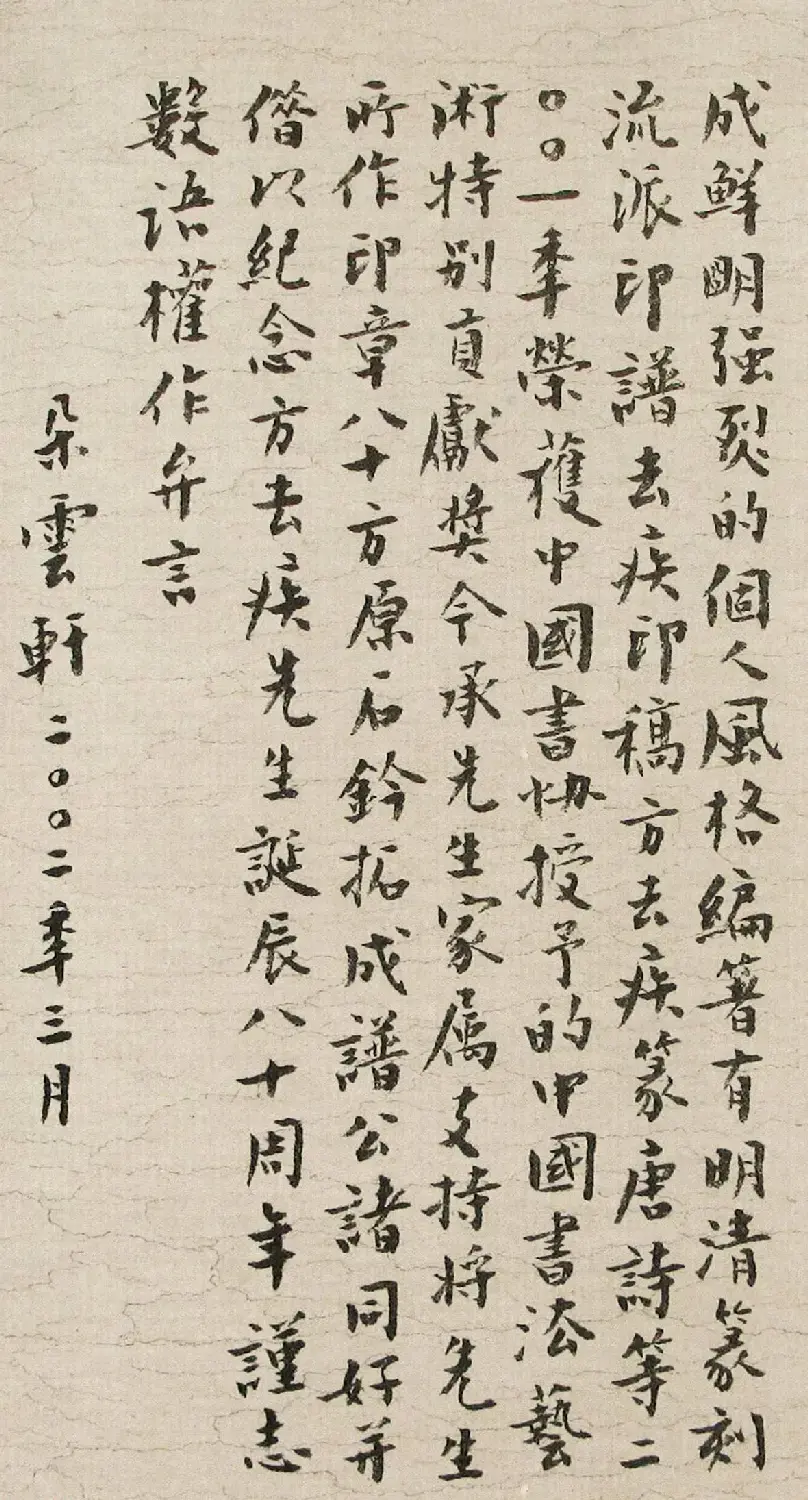 成鮮明强烈的個人風格編著有明清篆刻
流派印譜去疾印稿方去疾篆唐詩等二
〇〇一年榮獲中國書協授予的中國書法藝
術特别貢獻獎今承先生家属支持將先生
所作印章八十方原石鈐拓成譜公諸同好并
偕以紀念方去疾先生誕辰八十周年謹志
數語權作弁言
朵雲軒二〇〇二年三月